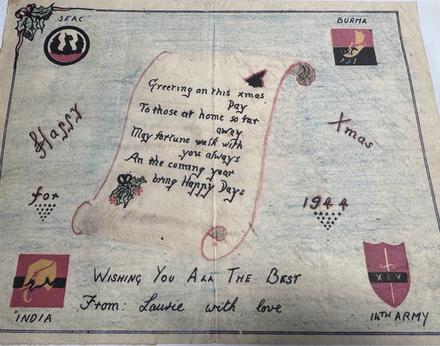 SEAC
BURMA
Happy
Xmas
for
1944
Greeting on this xmas.
Day
To those at home so far
away
May fortune walk with
you always
An the coming year
bring Happy Days
WISHING YOU ALL THE BEST
From: Laurie with love
INDIA
XIV
14TH ARMY